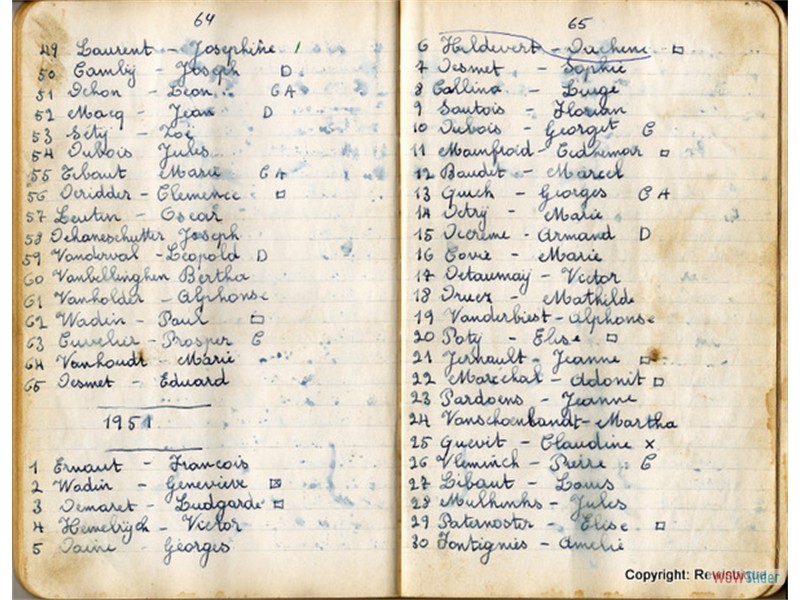 64
49 Laurent - Josephine /
50 Cambij - Joseph D
51 Dchon - Leon.. GA
52 Macq - Jean D
53 Sétij - Zoé
54 Dubois Jules
55 Tibaut Marie CA
56 Deridder - Clemence □
57 Leutin - Oscar
58 Dehaneschutter Joseph
59 Vanderval - Léopold D
60 Vanbellinghen Bertha
61 Vanholder - Alphonse
62 Wadin - Paul □
63 Cuvelier - Prosper C
64 Vanhoudt - Marie
65 Desmet - Eduard
1951
1 Ernaut - François
2 Wadin - Genevieve ☒
3 Demaret - Ludgarde □
4 Hemelrijck - Victor
5 Daine - Georges
65
6 Hildevert -
7 Desmet - Sophie
8 Callina - Luigé
9 Sautois - Florian
10 Dubois - Georget C
11 Mainfroid - □
12 Baudet - Marcel
13 Guich - Georges CA
14 Detrij - Marie
15 Decrème - Armand D
16 - Marie
17 Detaunnay - Victor
18 Druez - Mathilde
19 Vanderbiest - Alphonse
20 Potij - Elise □
21 Jernault - Jeanne □
22 Maréchal - Adonit □
23 Pardoens - Jeanne
24 - Martha
25 Quevit - Claudine x
26 Vleminch - Pierre C
27 Libaut - Louis
28 - Jules
29 Paternoster - Elise □
30 Fontignies - Amelie
Copyright: Rewisbique
WOWSlider